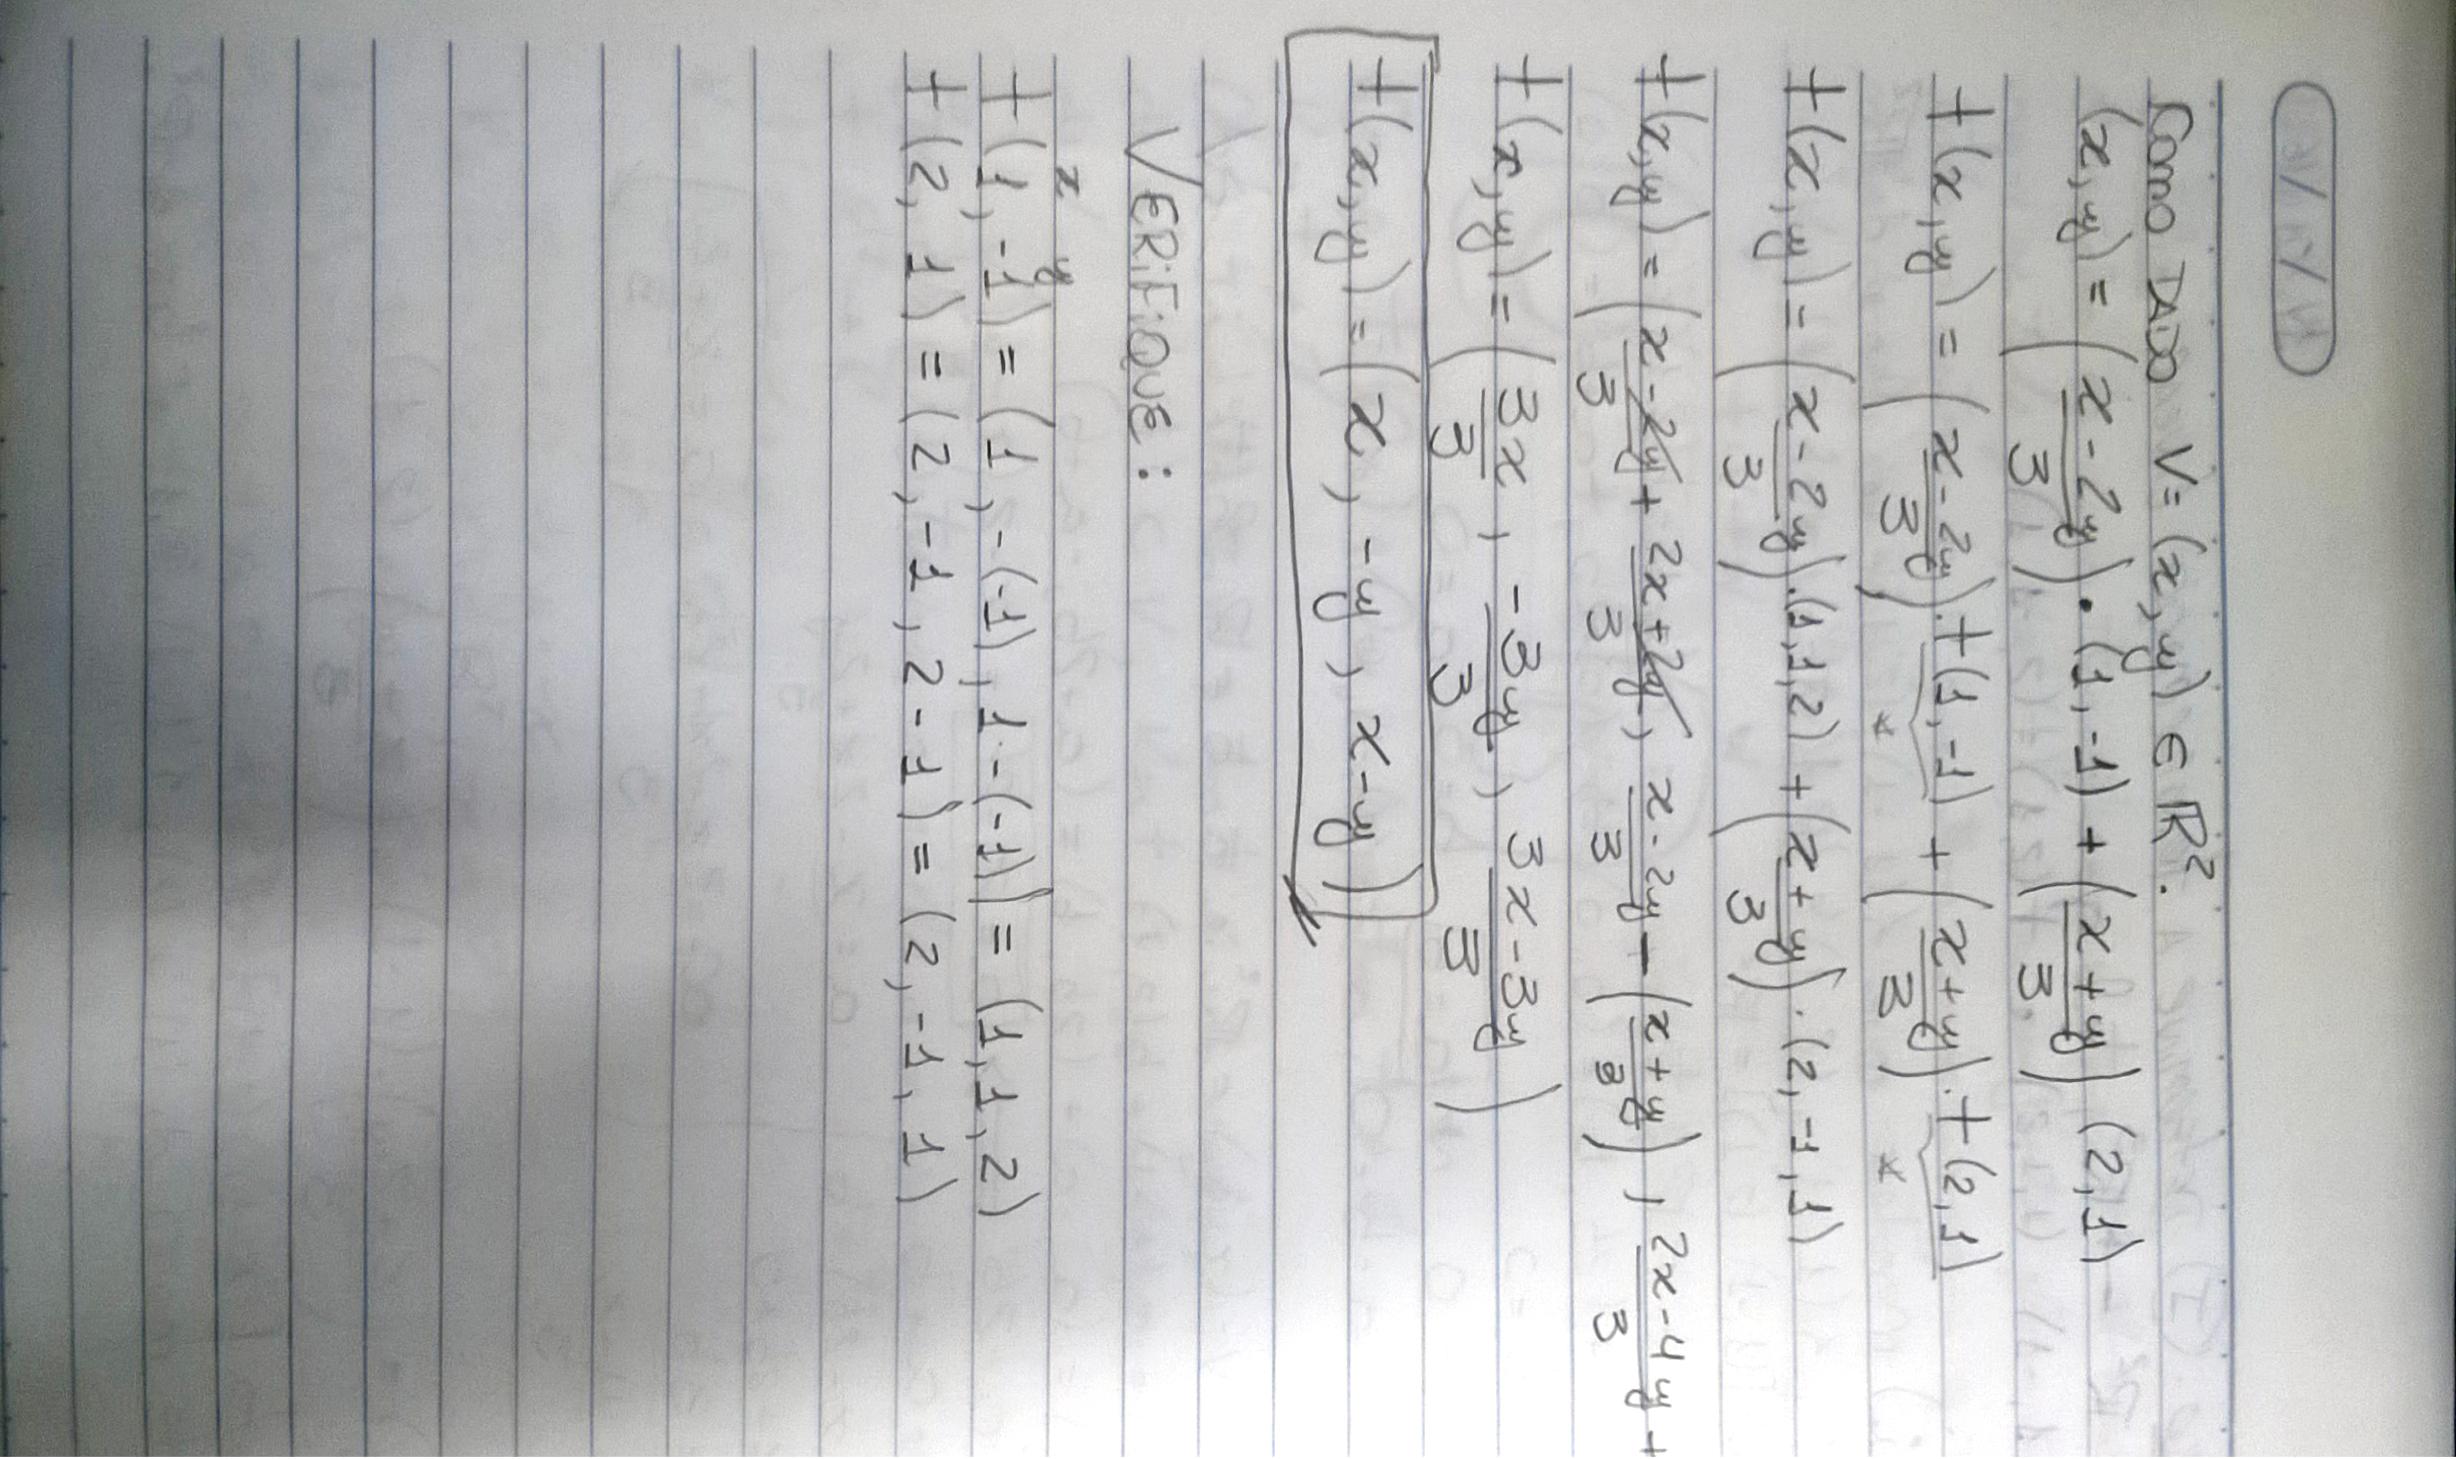 Como DADO V = (x, y) ∈ ℝ².
(x, y) = ((x - 2y)/3) · (1, -1) + ((x + y)/3) (2, 1)
t(x, y) = ((x - 2y)/3) · t(1, -1) + ((x + y)/3) · t(2, 1)
* *
t(x, y) = ((x - 2y)/3) · (1, 1, 2) + ((x + y)/3) · (2, -1, 1)
t(x, y) = ((x - 2y)/3 + (2x + 2y)/3, (x - 2y)/3 - ((x + y)/3), (2x - 4y)/3 +
t(x, y) = (3x/3, -3y/3, (3x - 3y)/3)
t(x, y) = (x, -y, x - y)
VERIFIQUE:
x y
t(1, -1) = (1, -(-1), 1 - (-1)) = (1, 1, 2)
t(2, 1) = (2, -1, 2 - 1) = (2, -1, 1)